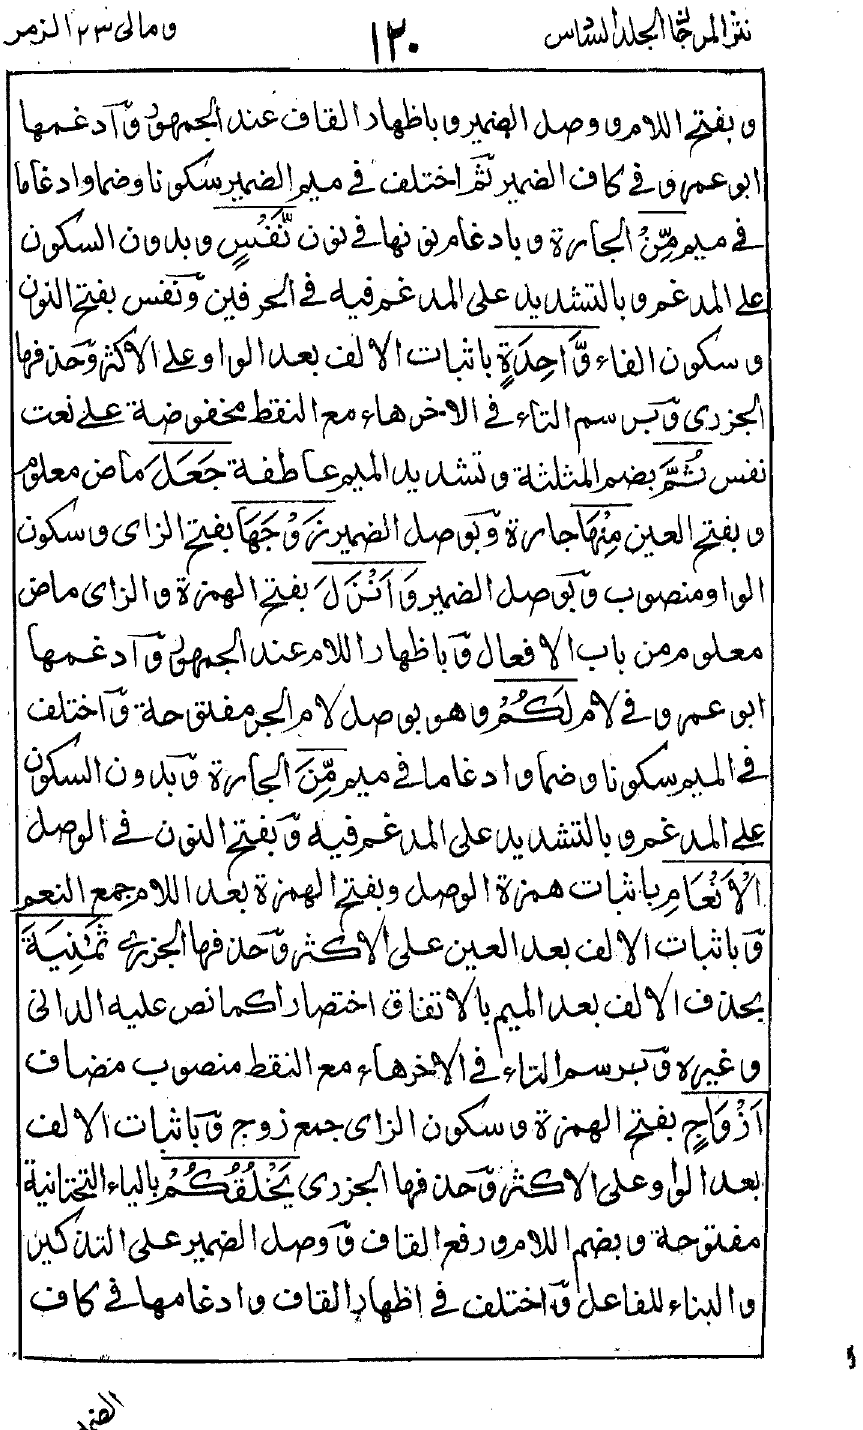 نثر المرجان الجلد السادس
١٢٠
ومالى ٢٣ الزمر
وبفتح اللام ووصل الضمير وباظهار القاف عند الجمهور وآدغمها
ابو عمرو فى كاف الضمير ثم اختلف فى ميم الضمير سكونا وضما وادغاما
فى ميم مِّنْ الجارة وبادغام نونها فى نون نَّفْسٍ وبدون السكون
على المدغم وبالتشديد على المدغم فيه فى الحرفين ونفس بفتح النون
وسكون الفاء وَّاحِدَةٍ باثبات الالف بعد الواو على الاكثر وحذفها
الجزرى وبرسم التاء فى الاخر هاء مع النقط مخفوضة على نعت
نفس ثُمَّ بضم المثلثة وتشديد الميم عاطفة جَعَلَ ماض معلوم
وبفتح العين مِنْهَا جارة وبوصل الضمير زَوْجَهَا بفتح الزاى وسكون
الواو ومنصوب وبوصل الضمير وَاَنْزَلَ بفتح الهمزة والزاى ماض
معلوم من باب الافعال وباظهار اللام عند الجمهور وآدغمها
ابو عمرو فى لام لَكُمْ وهو بوصل لام الجر مفتوحة واختلف
فى الميم سكونا وضما وادغاما فى ميم مِّنَ الجارة وبدون السكون
على المدغم وبالتشديد على المدغم فيه وبفتح النون فى الوصل
الْاَنْعَامِ باثبات همزة الوصل وبفتح الهمزة بعد اللام جمع النعم
وباثبات الالف بعد العين على الاكثر وحذفها الجزرى ثَمٰنِيَةَ
بحذف الالف بعد الميم بالاتفاق اختصارا كما نص عليه الدانى
وغيره وبرسم التاء فى الاخر هاء مع النقط منصوب مضاف
اَزْوَاجٍ بفتح الهمزة وسكون الزاى جمع زوج وباثبات الالف
بعد الواو على الاكثر وحذفها الجزرى يَخْلُقُكُمْ بالياء التحتانية
مفتوحة وبضم اللام ورفع القاف ووصل الضمير على التذكير
والبناء للفاعل واختلف فى اظهار القاف وادغامها فى كاف